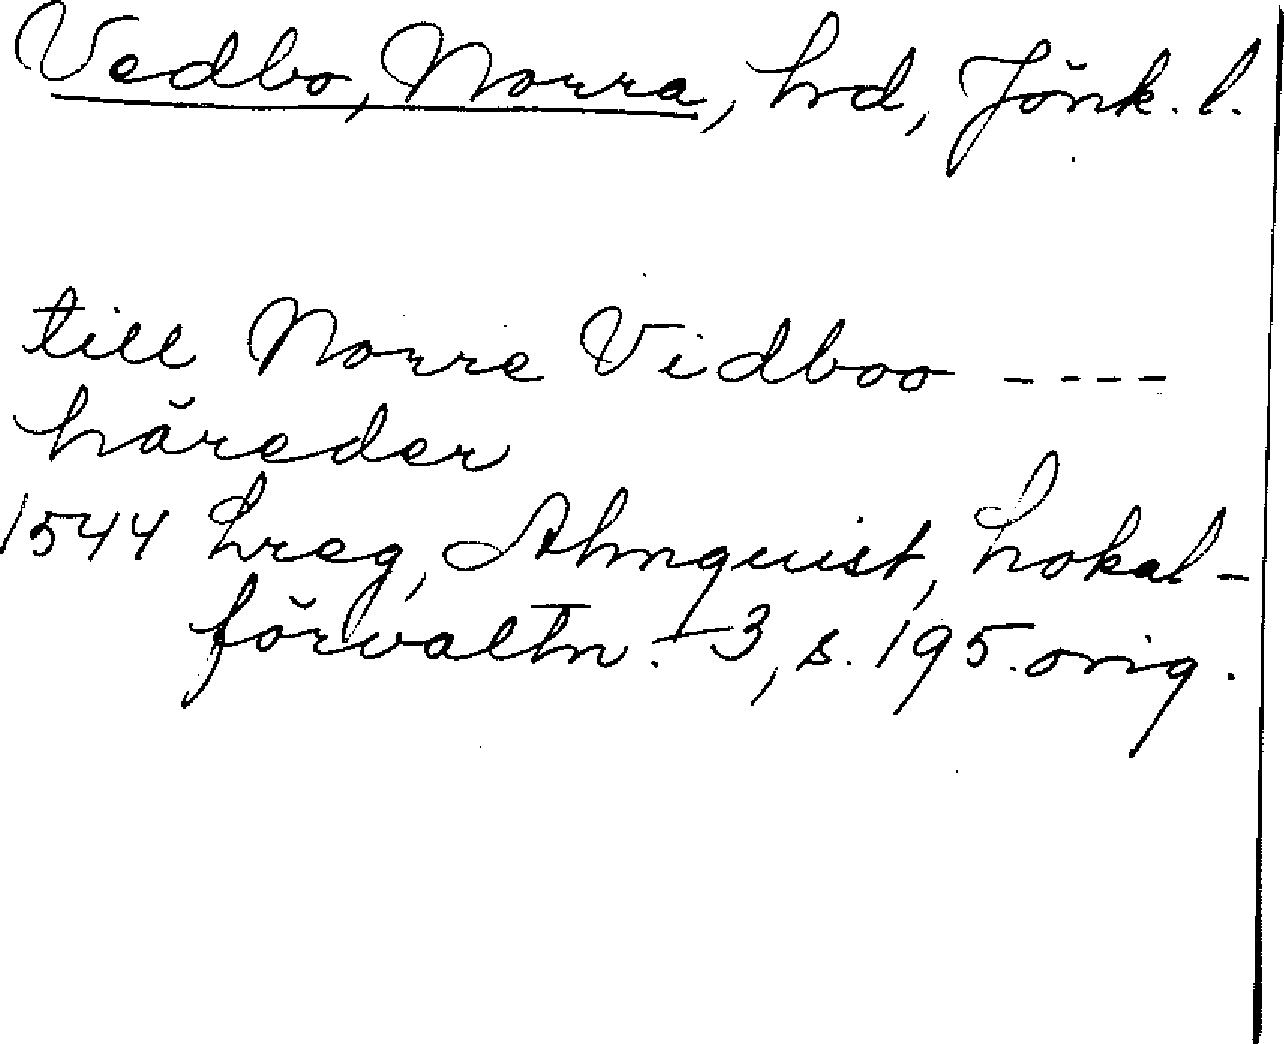 Vedbo, Norra, hd, Jönk. l.
till Norre Vidboo ----
häreder
1544 Lreg, Almquist, Lokal-
förvaltn. 3, s. 195. orig.